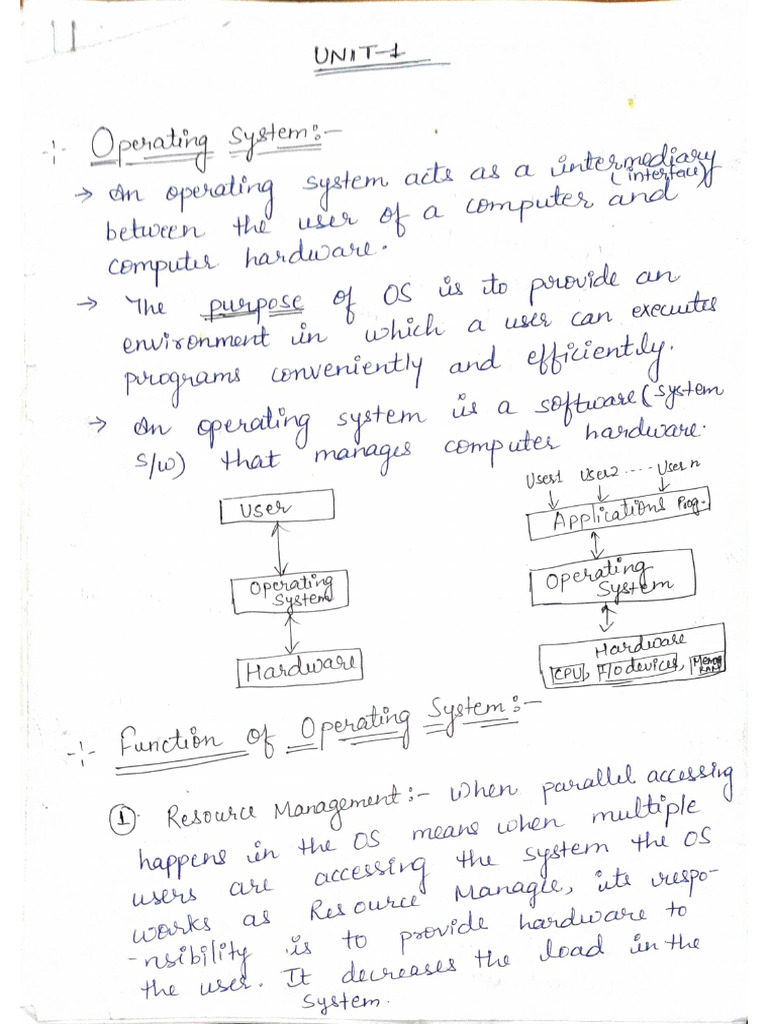 UNIT-1
Operating System:-
→ An operating system acts as a intermediary
(interface)
between the user of a computer and
computer hardware.
→ The purpose of OS is to provide an
environment in which a user can executes
programs conveniently and efficiently.
→ An operating system is a software (system
s/w) that manages computer hardware.
User
Operating
System
Hardware
User1 User2 ---- User n
Applications Prog.
Operating
System
Hardware
CPU, I/O devices, Memory
RAM
Function of Operating System:-
① Resource Management:- When parallel accessing
happens in the OS means when multiple
users are accessing the system the OS
works as Resource Manage, its respo-
-nsibility is to provide hardware to
the user. It decreases the load in the
system.